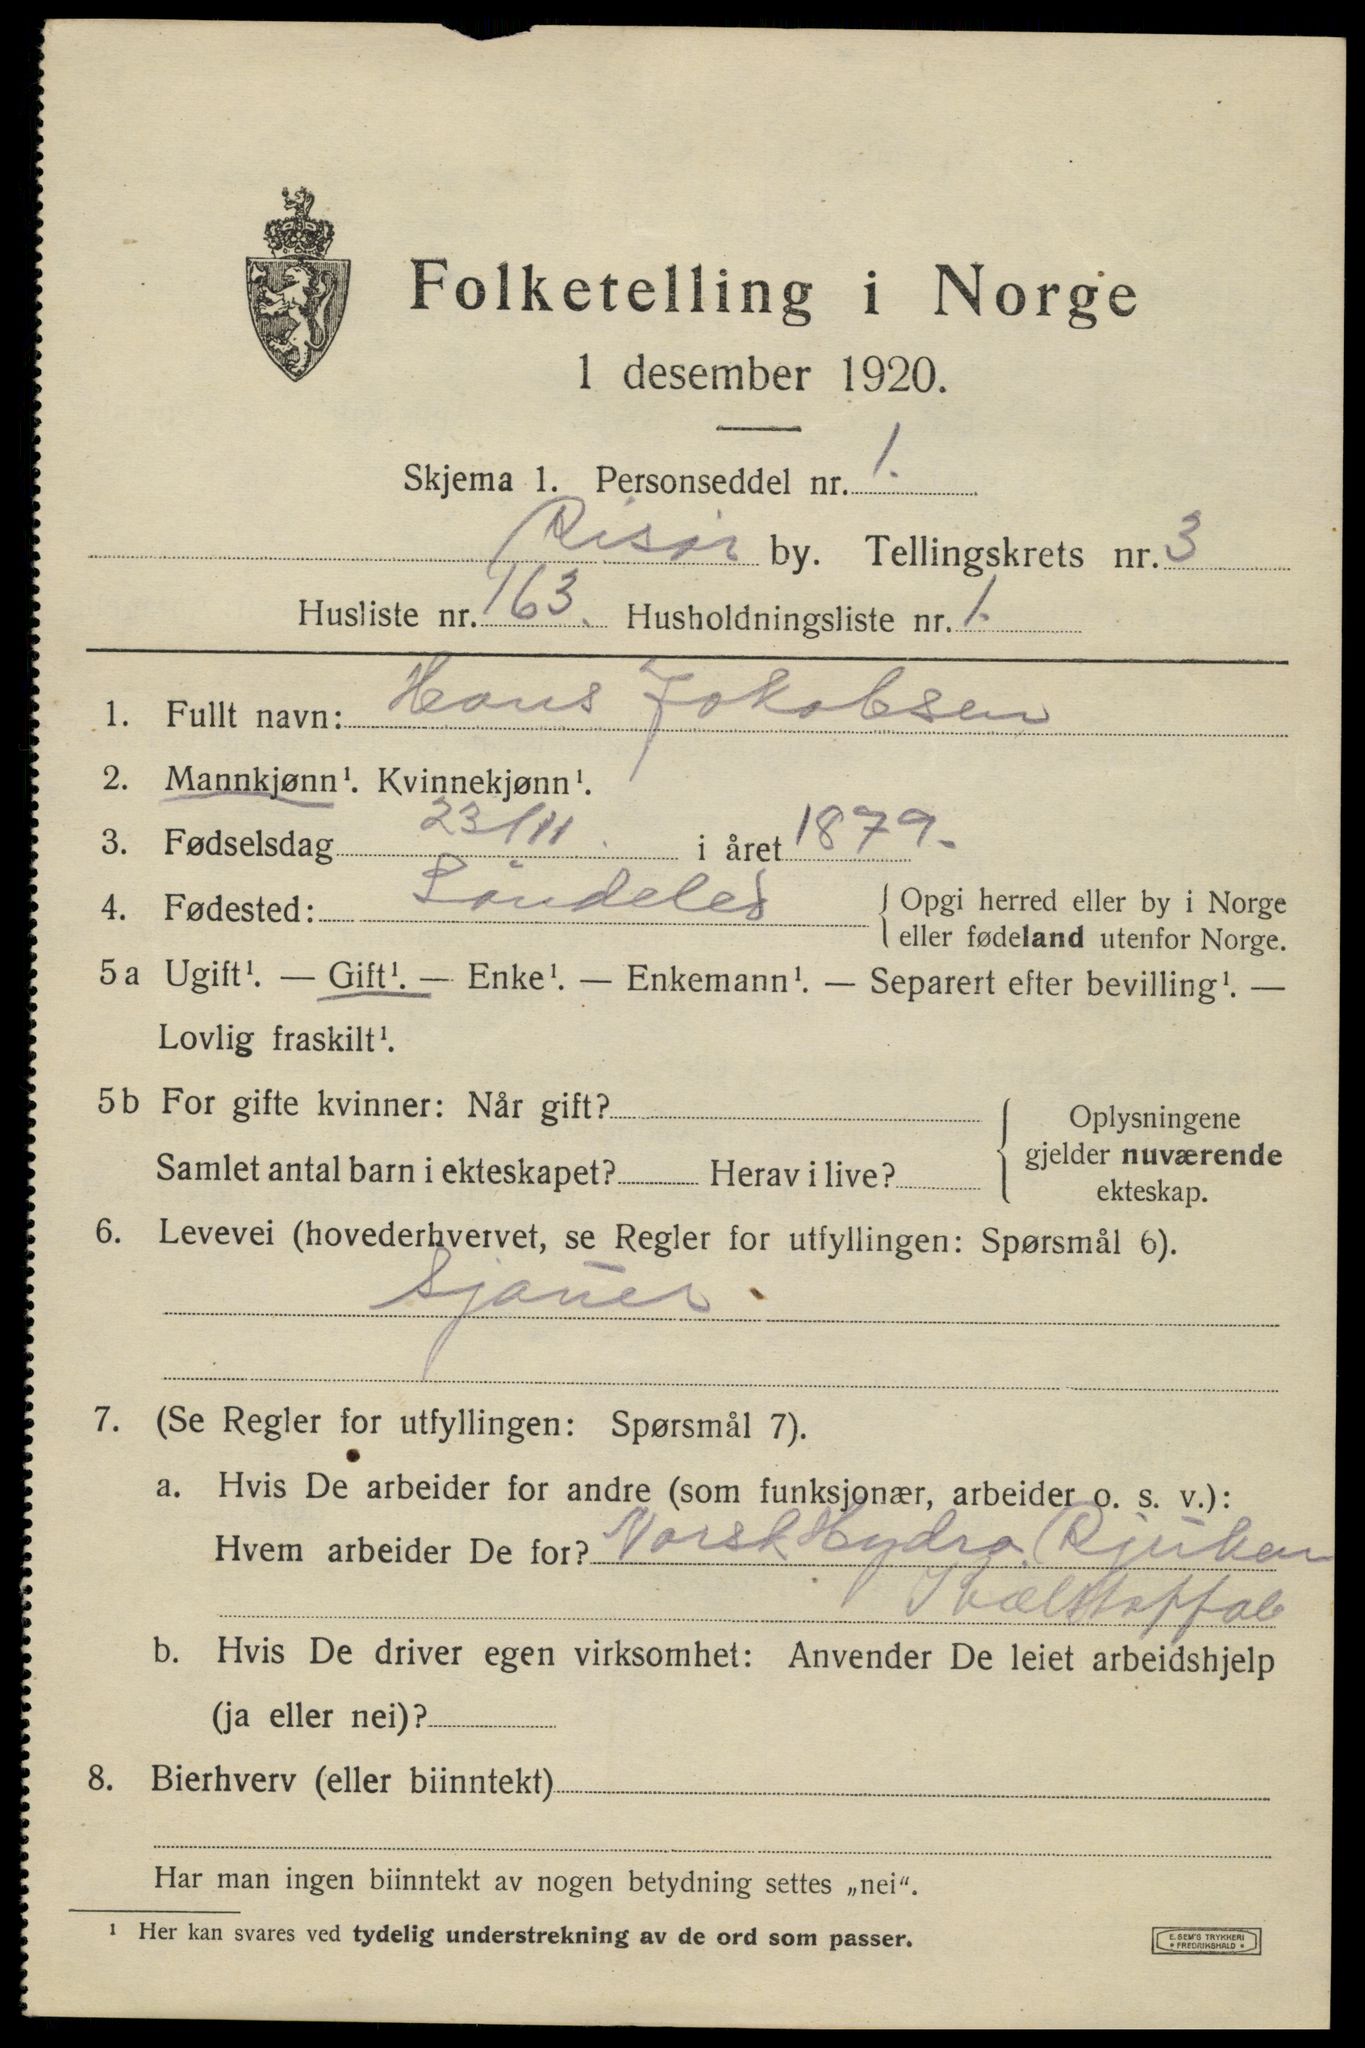 Folketelling i Norge
1 desember 1920.
Skjema 1. Personseddel nr. 1.
Risør by. Tellingskrets nr. 3
Husliste nr. 163. Husholdningsliste nr. 1.
1. Fullt navn: Hans Jakobsen
2. Mannkjønn¹. Kvinnekjønn¹.
3. Fødselsdag 23/11. i året 1879.
4. Fødested: Söndeled { Opgi herred eller by i Norge
eller fødeland utenfor Norge.
5a Ugift¹. — Gift¹. — Enke¹. — Enkemann¹. — Separert efter bevilling¹. —
Lovlig fraskilt¹.
5b For gifte kvinner: Når gift? { Oplysningene
gjelder nuværende
ekteskap.
Samlet antal barn i ekteskapet? Herav i live?
6. Levevei (hovederhvervet, se Regler for utfyllingen: Spørsmål 6).
Sjauer
7. (Se Regler for utfyllingen: Spørsmål 7).
a. Hvis De arbeider for andre (som funksjonær, arbeider o. s. v.):
Hvem arbeider De for? Norsk Hydro. Rjukan
b. Hvis De driver egen virksomhet: Anvender De leiet arbeidshjelp
(ja eller nei)?
8. Bierhverv (eller biinntekt)
Har man ingen biinntekt av nogen betydning settes „nei“.
¹ Her kan svares ved tydelig understrekning av de ord som passer.
E. SEM'S TRYKKERI
• FREDRIKSHALD •